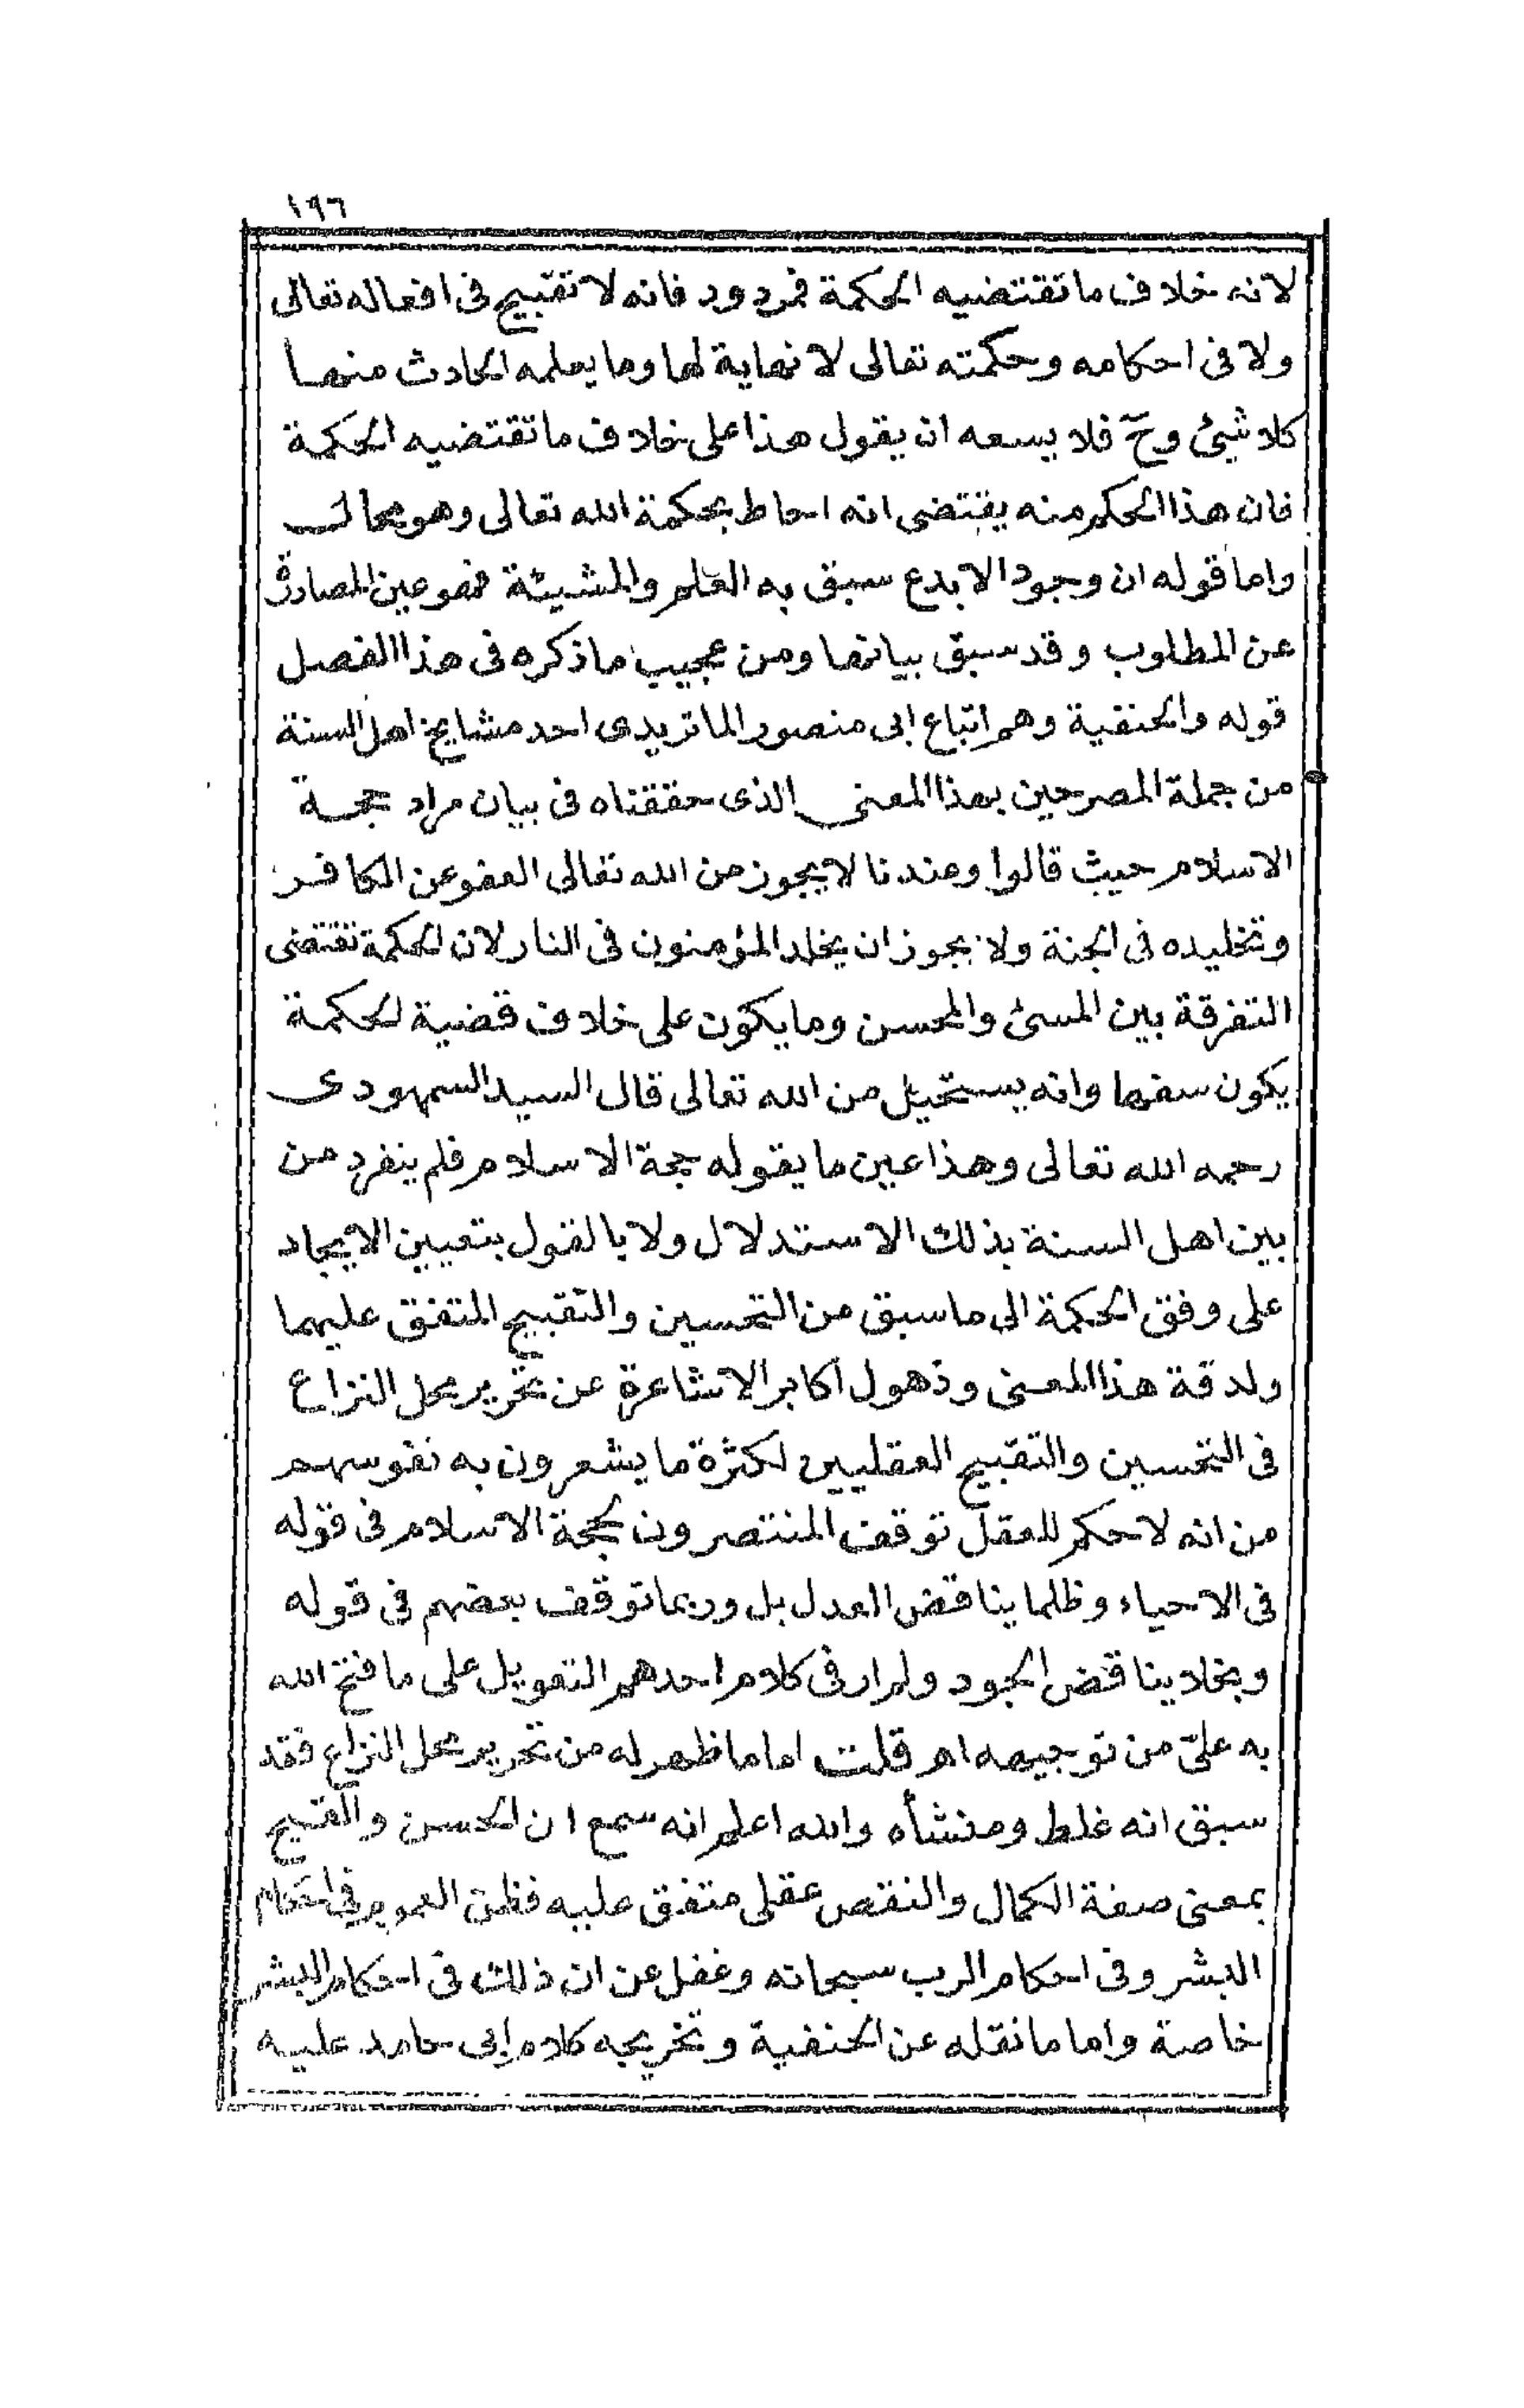 ١٩٦
لانه خلاف ما تقتضيه الحكمة فمردود فانه لا تقبيح فى افعاله تعالى
ولا فى احكامه وحكمته تعالى لا نهاية لها وما يعلمه الحادث منها
كلا شيئ وح فلا يسعه ان يقول هذا على خلاف ما تقتضيه الحكمة
فان هذا الحكم منه يقتضى انه احاط بحكمة الله تعالى وهو محال
واما قوله ان وجود الابدع سبق به العلم والمشيئة فهو عين المصادرة
عن المطلوب وقد سبق بيانها ومن عجيب ما ذكره فى هذا الفصل
قوله والحنفية وهم اتباع ابى منصور الماتريدى احد مشايخ اهل السنة
من جملة المصرحين بهذا المعنى الذى حققناه فى بيان مراد حجة
الاسلام حيث قالوا وعندنا لا يجوز من الله تعالى العفو عن الكافر
وتخليده فى الجنة ولا يجوز ان يخلد المؤمنون فى النار لان الحكمة تقتضى
التفرقة بين المسئ والمحسن وما يكون على خلاف قضية الحكمة
يكون سفها وانه يستحيل من الله تعالى قال السيد السمهودى
رحمه الله تعالى وهذا عين ما يقوله حجة الاسلام فلم ينفرد من
بين اهل السنة بذلك الاستدلال ولا بالقول بتعيين الايجاد
على وفق الحكمة الى ما سبق من التحسين والتقبيح المتفق عليهما
ولدقة هذا المعنى وذهول اكابر الاشاعرة عن تحرير محل النزاع
فى التحسين والتقبيح العقليين لكثرة ما يشعرون به نفوسهم
من انه لا حكم للعقل توقف المنتصرون لحجة الاسلام فى قوله
فى الاحياء وظلما يناقض العدل بل وربما توقف بعضهم فى قوله
وبخلا يناقض الجود ولم ار فى كلام احدهم التعويل على ما فتح الله
به علىّ من توجيهه اهـ قلت اما ما ظهر له من تحرير محل النزاع فقد
سبق انه غلط ومنشأه والله اعلم انه سمع ان الحسن والقبيح
بمعنى صفة الكمال والنقص عقلى متفق عليه فظن العموم فى احكام
البشر وفى احكام الرب سبحانه وغفل عن ان ذلك فى احكام البشر
خاصة واما ما نقله عن الحنفية وتخريجه كلام ابى حامد عليه